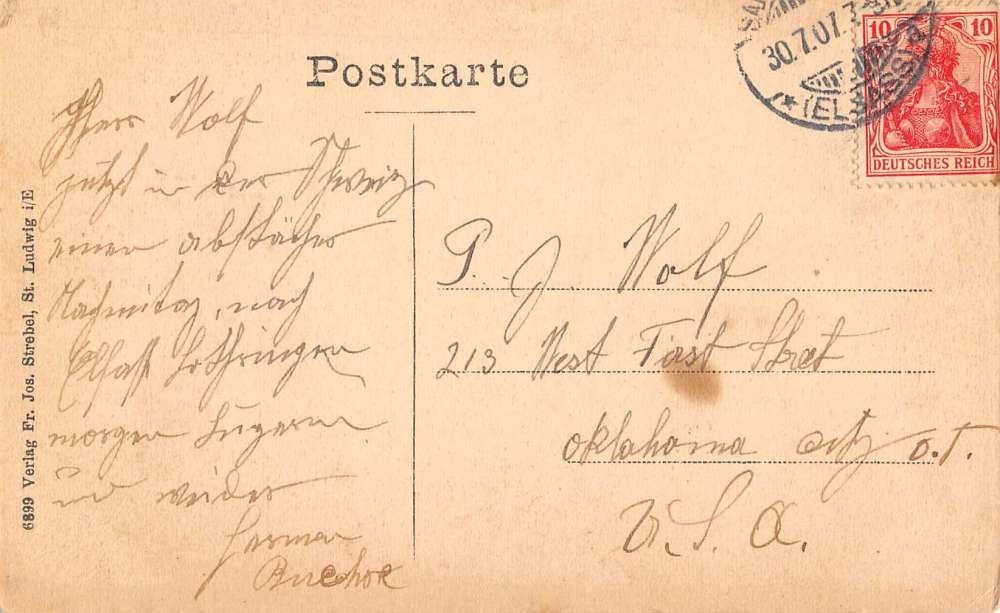 Postkarte
30.7.07. 7-8N
(ELSASS) a
10 10
DEUTSCHES REICH
Herr Wolf
jetzt in der Schweiz
einen abstächer
Nachmitag, nach
Elsaß Lothringen
morgen Luzern
und weider
Herman
P. J. Wolf
213 West First Street
Oklahoma city O.T.
U.S.A.
6899 Verlag Fr. Jos. Strebel, St. Ludwig i/E